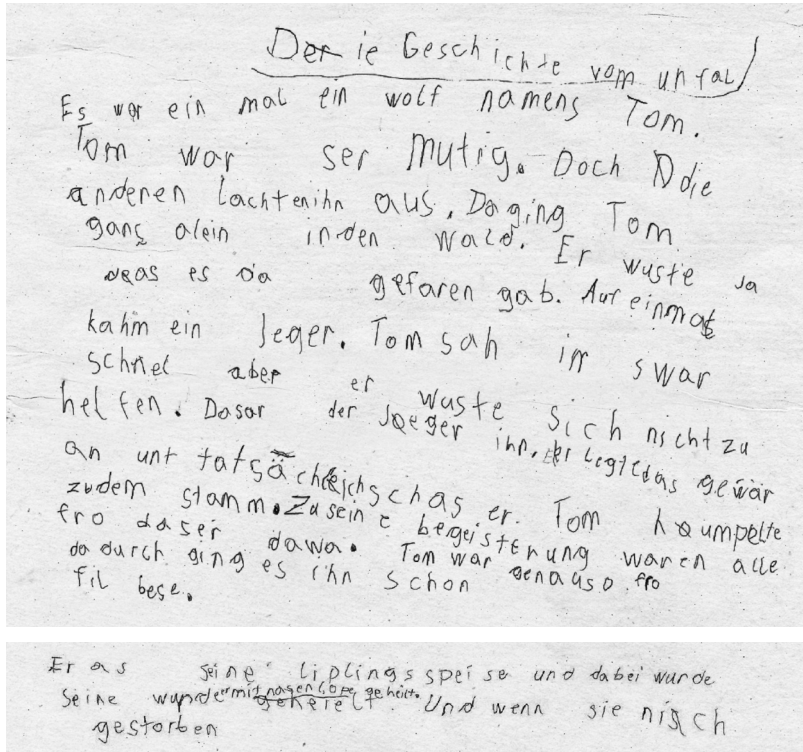 Die Geschichte vom unfal
Es war ein mal ein wolf namens Tom.
Tom war ser Mutig. Doch Ddie
anderen lachtenihn aus. Daging Tom
ganz alein inden wald. Er wuste ja
das es da gefaren gab. Auf einmal
kahm ein Jeger. Tom sah in swar
schnel aber er wuste sich nicht zu
helfen. Dasar der Jaeger ihn. Er legte das gewär
an unt tatsächleichschas er. Tom humpelte
zudem stamm. Zu seine begeisterung waren alle
fro daser dawa. Tom war genauso fro
dadurch ging es ihn schon
fil bese.
Er as seine liplingsspeise und dabei wurde
seine wunde mit geheilt. Und wenn sie nisch
gestorben